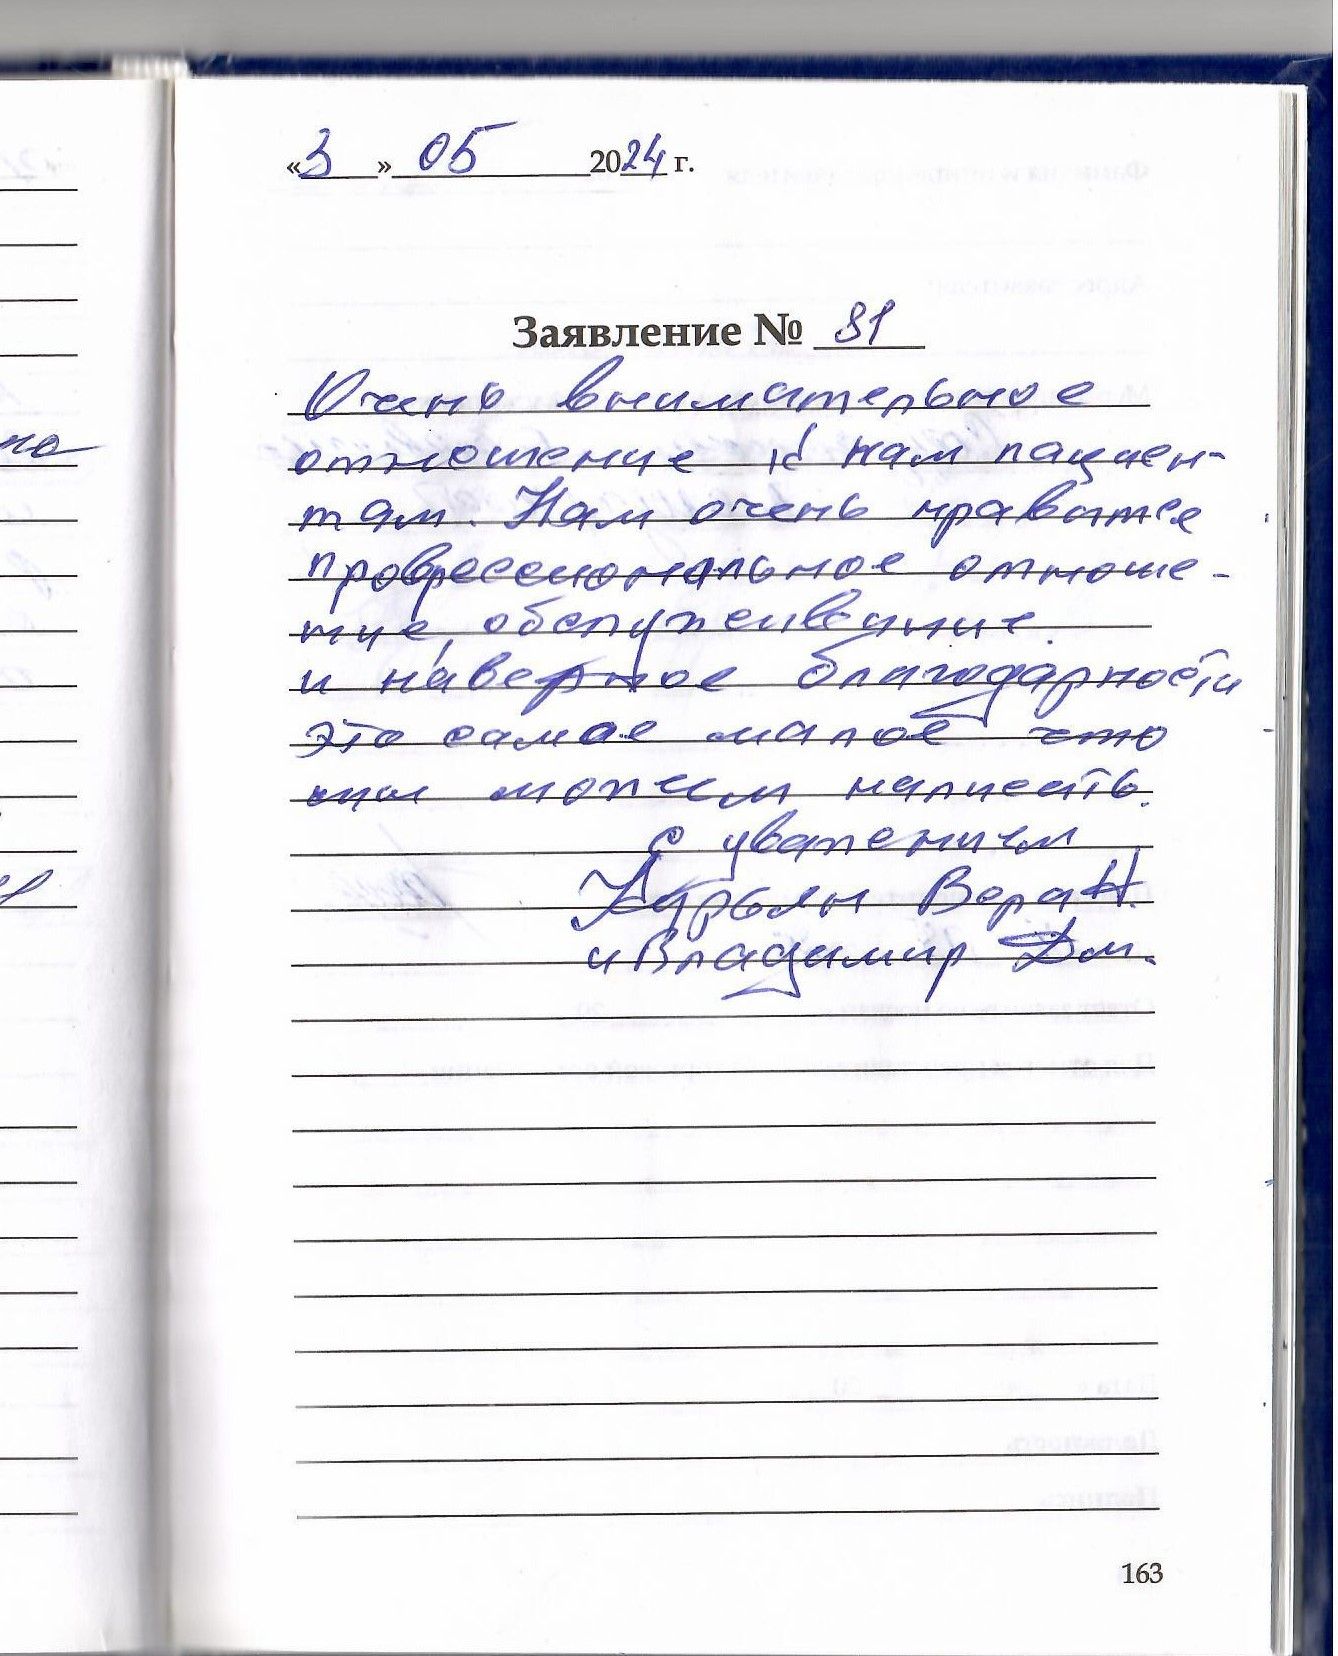 «3» 05 2024 г.
Заявление № 81
Очень внимательное
отношение к нам пациен-
там. Нам очень нравится
профессиональное отноше-
ние, обслуживание
и наверное благодарности
это самое малое что
мы можем написать.
с уважением
Курьян Вера Н.
и Владимир Дм.
163